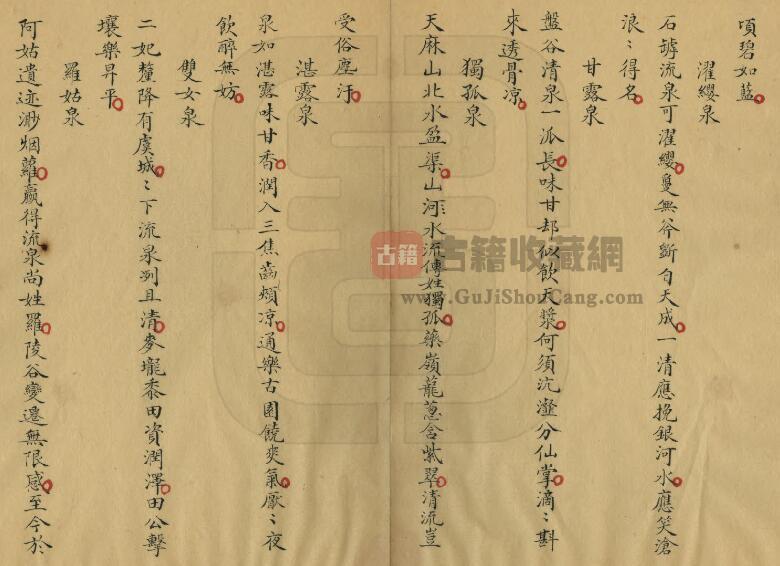 頃碧如藍
濯纓泉
石罅流泉可濯纓夐無斧斷自天成一清應挽銀河水應笑滄
浪〻得名
甘露泉
盤谷清泉一派長味甘却似飲天漿何須沆瀣分仙掌滴〻斟
來透骨凉
獨孤泉
天麻山北水盈渠山河水流傳姓獨孤藥嶺龍蔥含紫翠清流豈
受俗塵汙
湛露泉
泉如湛露味甘香潤入三焦齒頰凉通樂古園饒爽氣厭〻夜
飲醉無妨
雙女泉
二妃釐降有虞城〻下流泉冽且清麥壠黍田資潤澤田公擊
壤樂昇平
羅姑泉
阿姑遺迹渺烟蘿贏得流泉尚姓羅陵谷變遷無限感至今於
古籍
古籍收藏網
www.GuJiShouCang.com